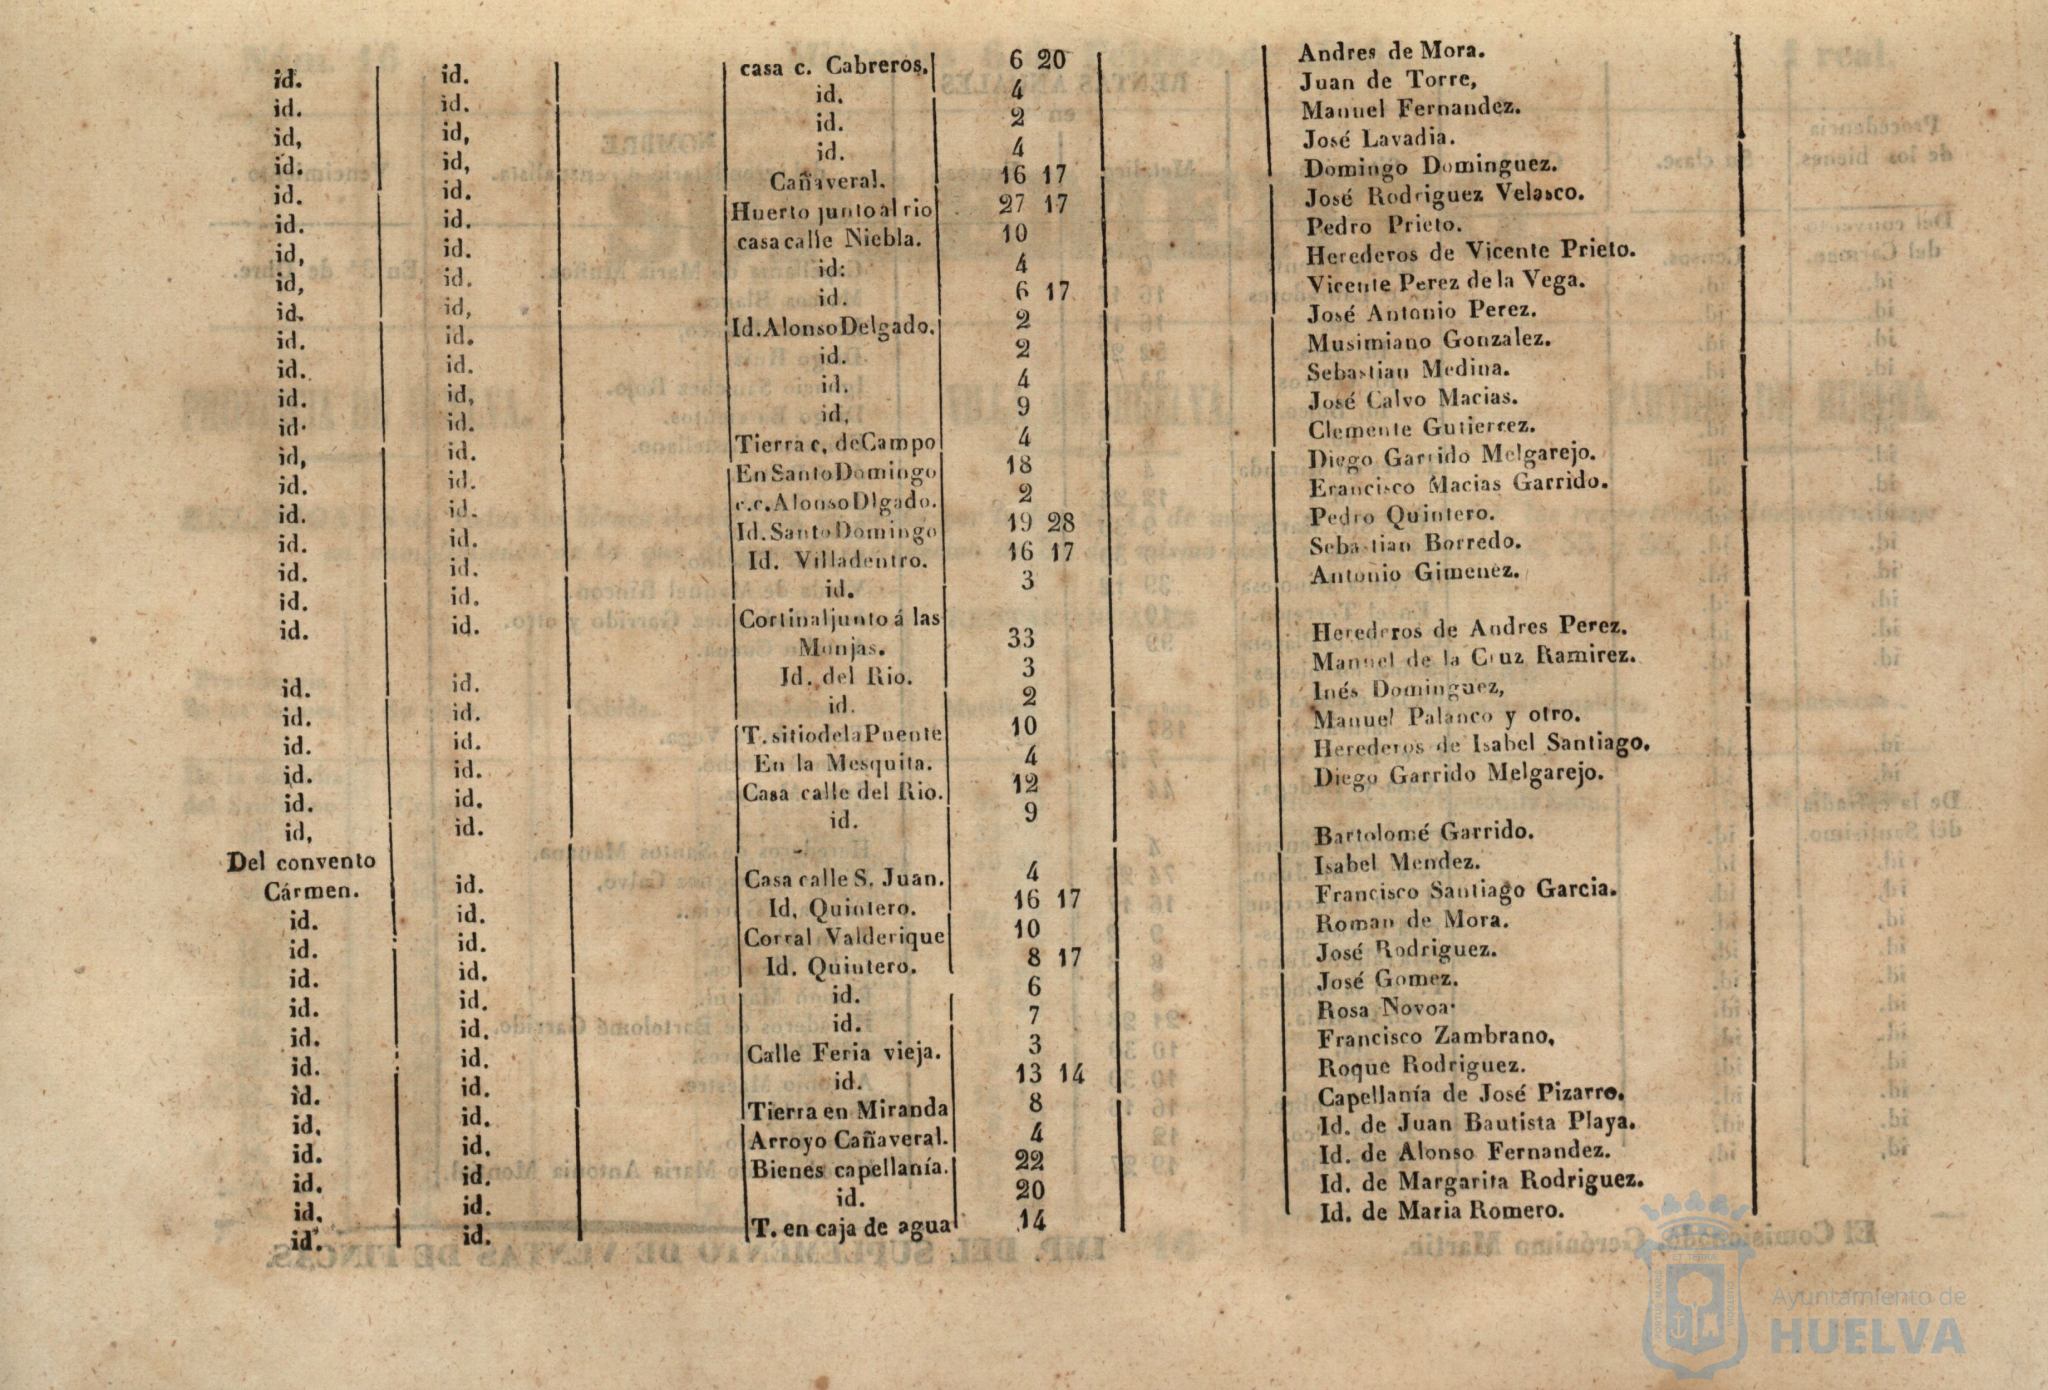 id. id. casa c. Cabreros. 6 20 Andres de Mora.
id. id. id. 4 Juan de Torre,
id, id, id. 2 Manuel Fernandez.
id. id, id. 4 José Lavadia.
id. id. Cañaveral. 16 17 Domingo Dominguez.
id. id. Huerto junto al rio 27 17 José Rodriguez Velasco.
id, id. casa calle Niebla. 10 Pedro Prieto.
id, id. id: 4 Herederos de Vicente Prieto.
id. id, id. 6 17 Vicente Perez de la Vega.
id. id. Id. Alonso Delgado. 2 José Antonio Perez.
id. id. id. 2 Musimiano Gonzalez.
id. id, id. 4 Sebastian Medina.
id. id. id, 9 José Calvo Macias.
id, id. Tierra c, de Campo 4 Clemente Gutierrez.
id. id. En Santo Domingo 18 Diego Garrido Melgarejo.
id. id. c.c. Alonso Dlgado. 2 Erancisco Macias Garrido.
id. id. Id. Santo Domingo 19 28 Pedro Quintero.
id. id. Id. Villadentro. 16 17 Sebastian Borredo.
id. id. id. 3 Antonio Gimenez.
id. id. Cortinal junto á las
Monjas. 33 Herederos de Andres Perez.
id. id. Id. del Rio. 3 Manuel de la Cruz Ramirez.
id. id. id. 2 Inés Dominguez,
id. id. T. sitio de la Puente 10 Manuel Palanco y otro.
id. id. En la Mesquita. 4 Herederos de Isabel Santiago.
id. id. Casa calle del Rio. 12 Diego Garrido Melgarejo.
id, id. id. 9
Del convento Bartolomé Garrido.
Cármen. id. Casa calle S. Juan. 4 Isabel Mendez.
id. id. Id, Quintero. 16 17 Francisco Santiago Garcia.
id. id. Corral Valderique 10 Roman de Mora.
id. id. Id. Quintero. 8 17 José Rodriguez.
id. id. id. 6 José Gomez.
id. id. id. 7 Rosa Novoa.
id. id. Calle Feria vieja. 3 Francisco Zambrano,
id. id. id. 13 14 Roque Rodriguez.
id. id. Tierra en Miranda 8 Capellanía de José Pizarro.
id. id. Arroyo Cañaveral. 4 Id. de Juan Bautista Playa.
id. id. Bienes capellanía. 22 Id. de Alonso Fernandez.
id. id. id. 20 Id. de Margarita Rodriguez.
id. id. T. en caja de agua 14 Id. de Maria Romero.
Ayuntamiento de
HUELVA